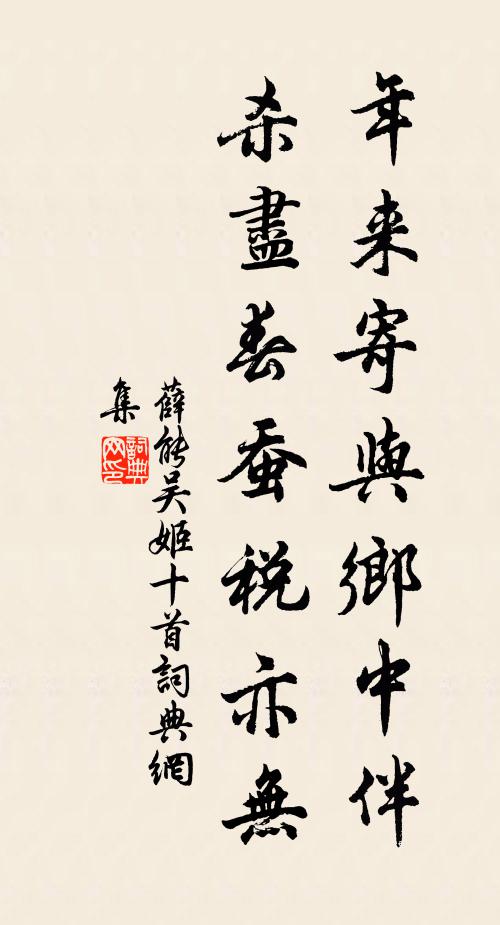 年来寄與鄉中伴
杀盡春蚕税亦無
薛能吴姬十首詞典網
集
詞典網印